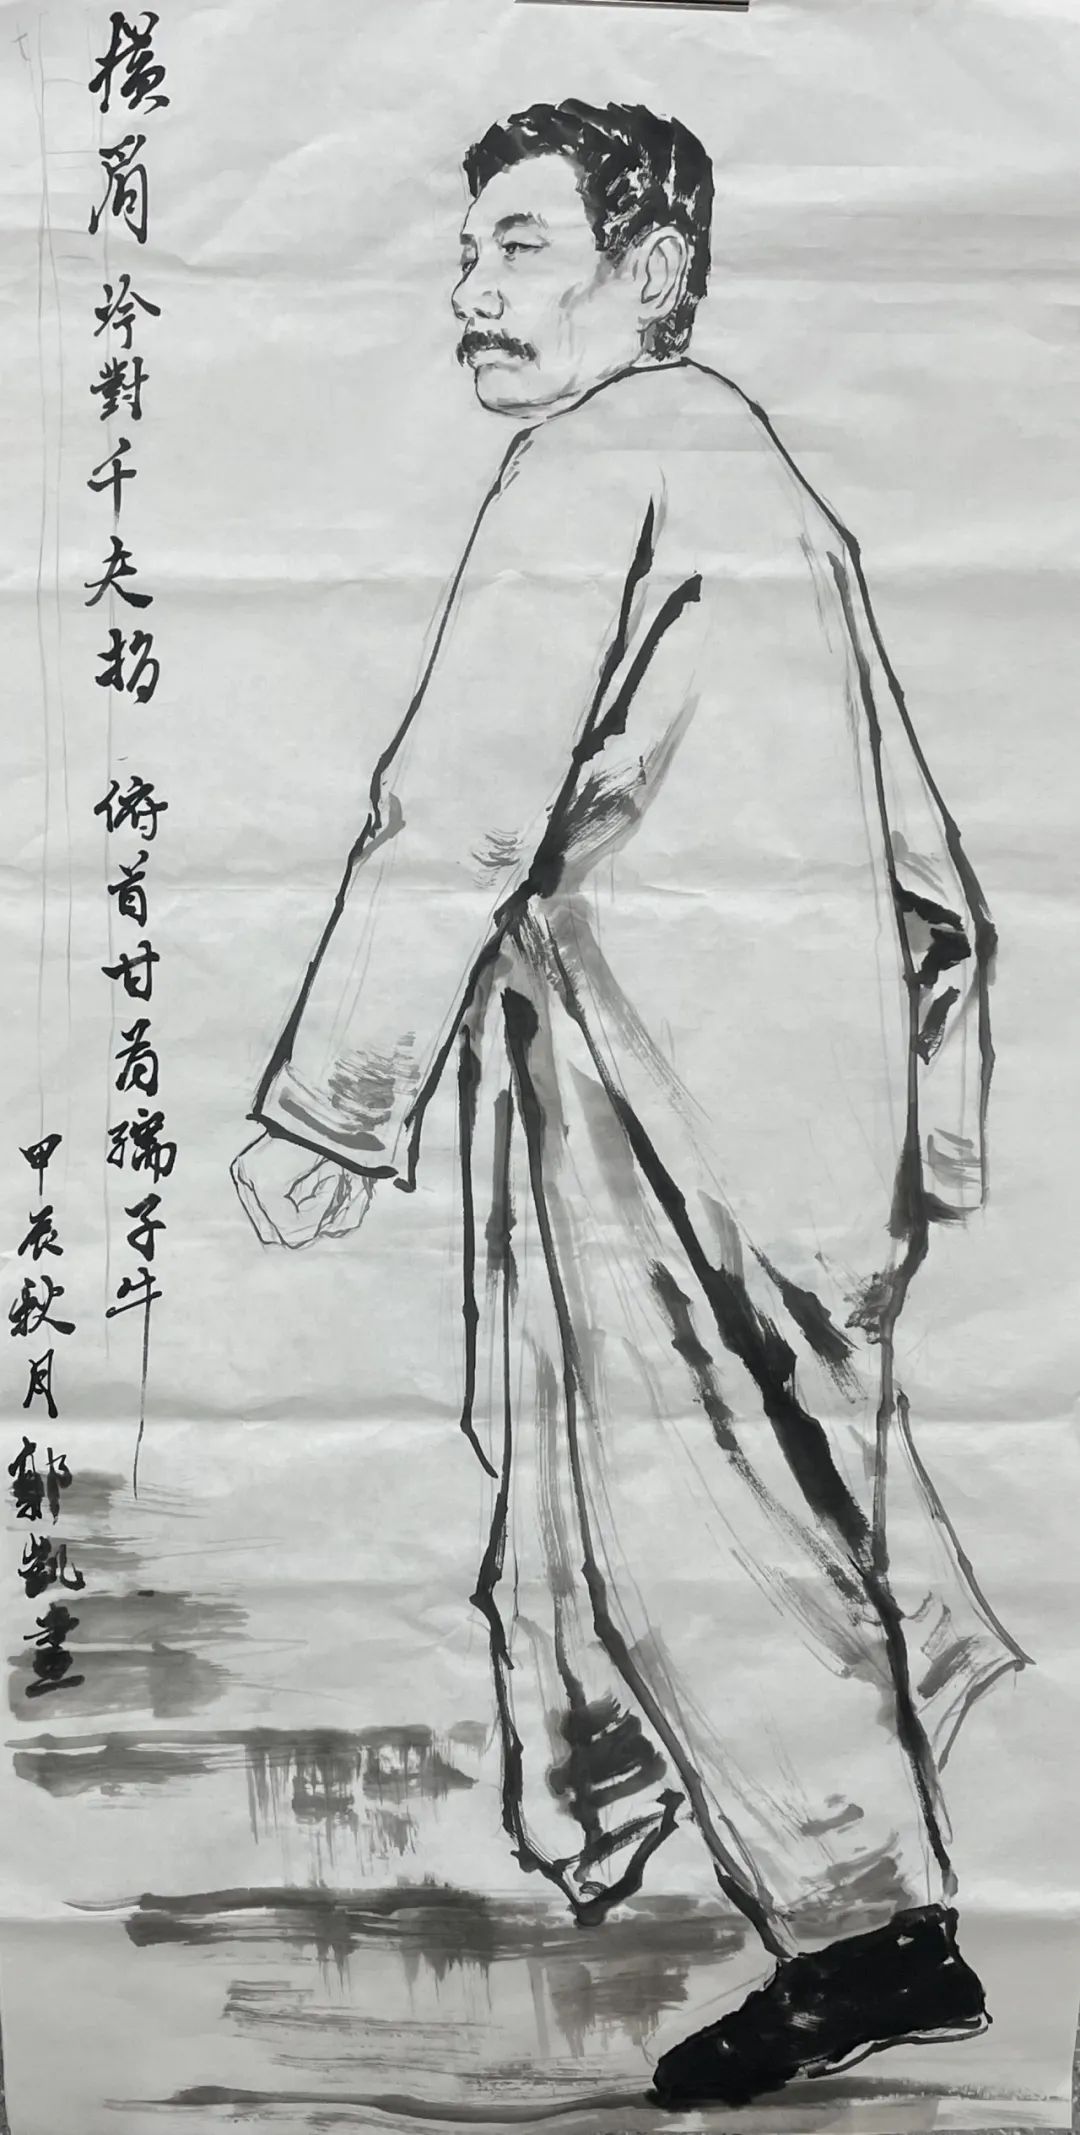 橫眉冷對千夫指 俯首甘為孺子牛
甲辰秋月 鄭凱畫